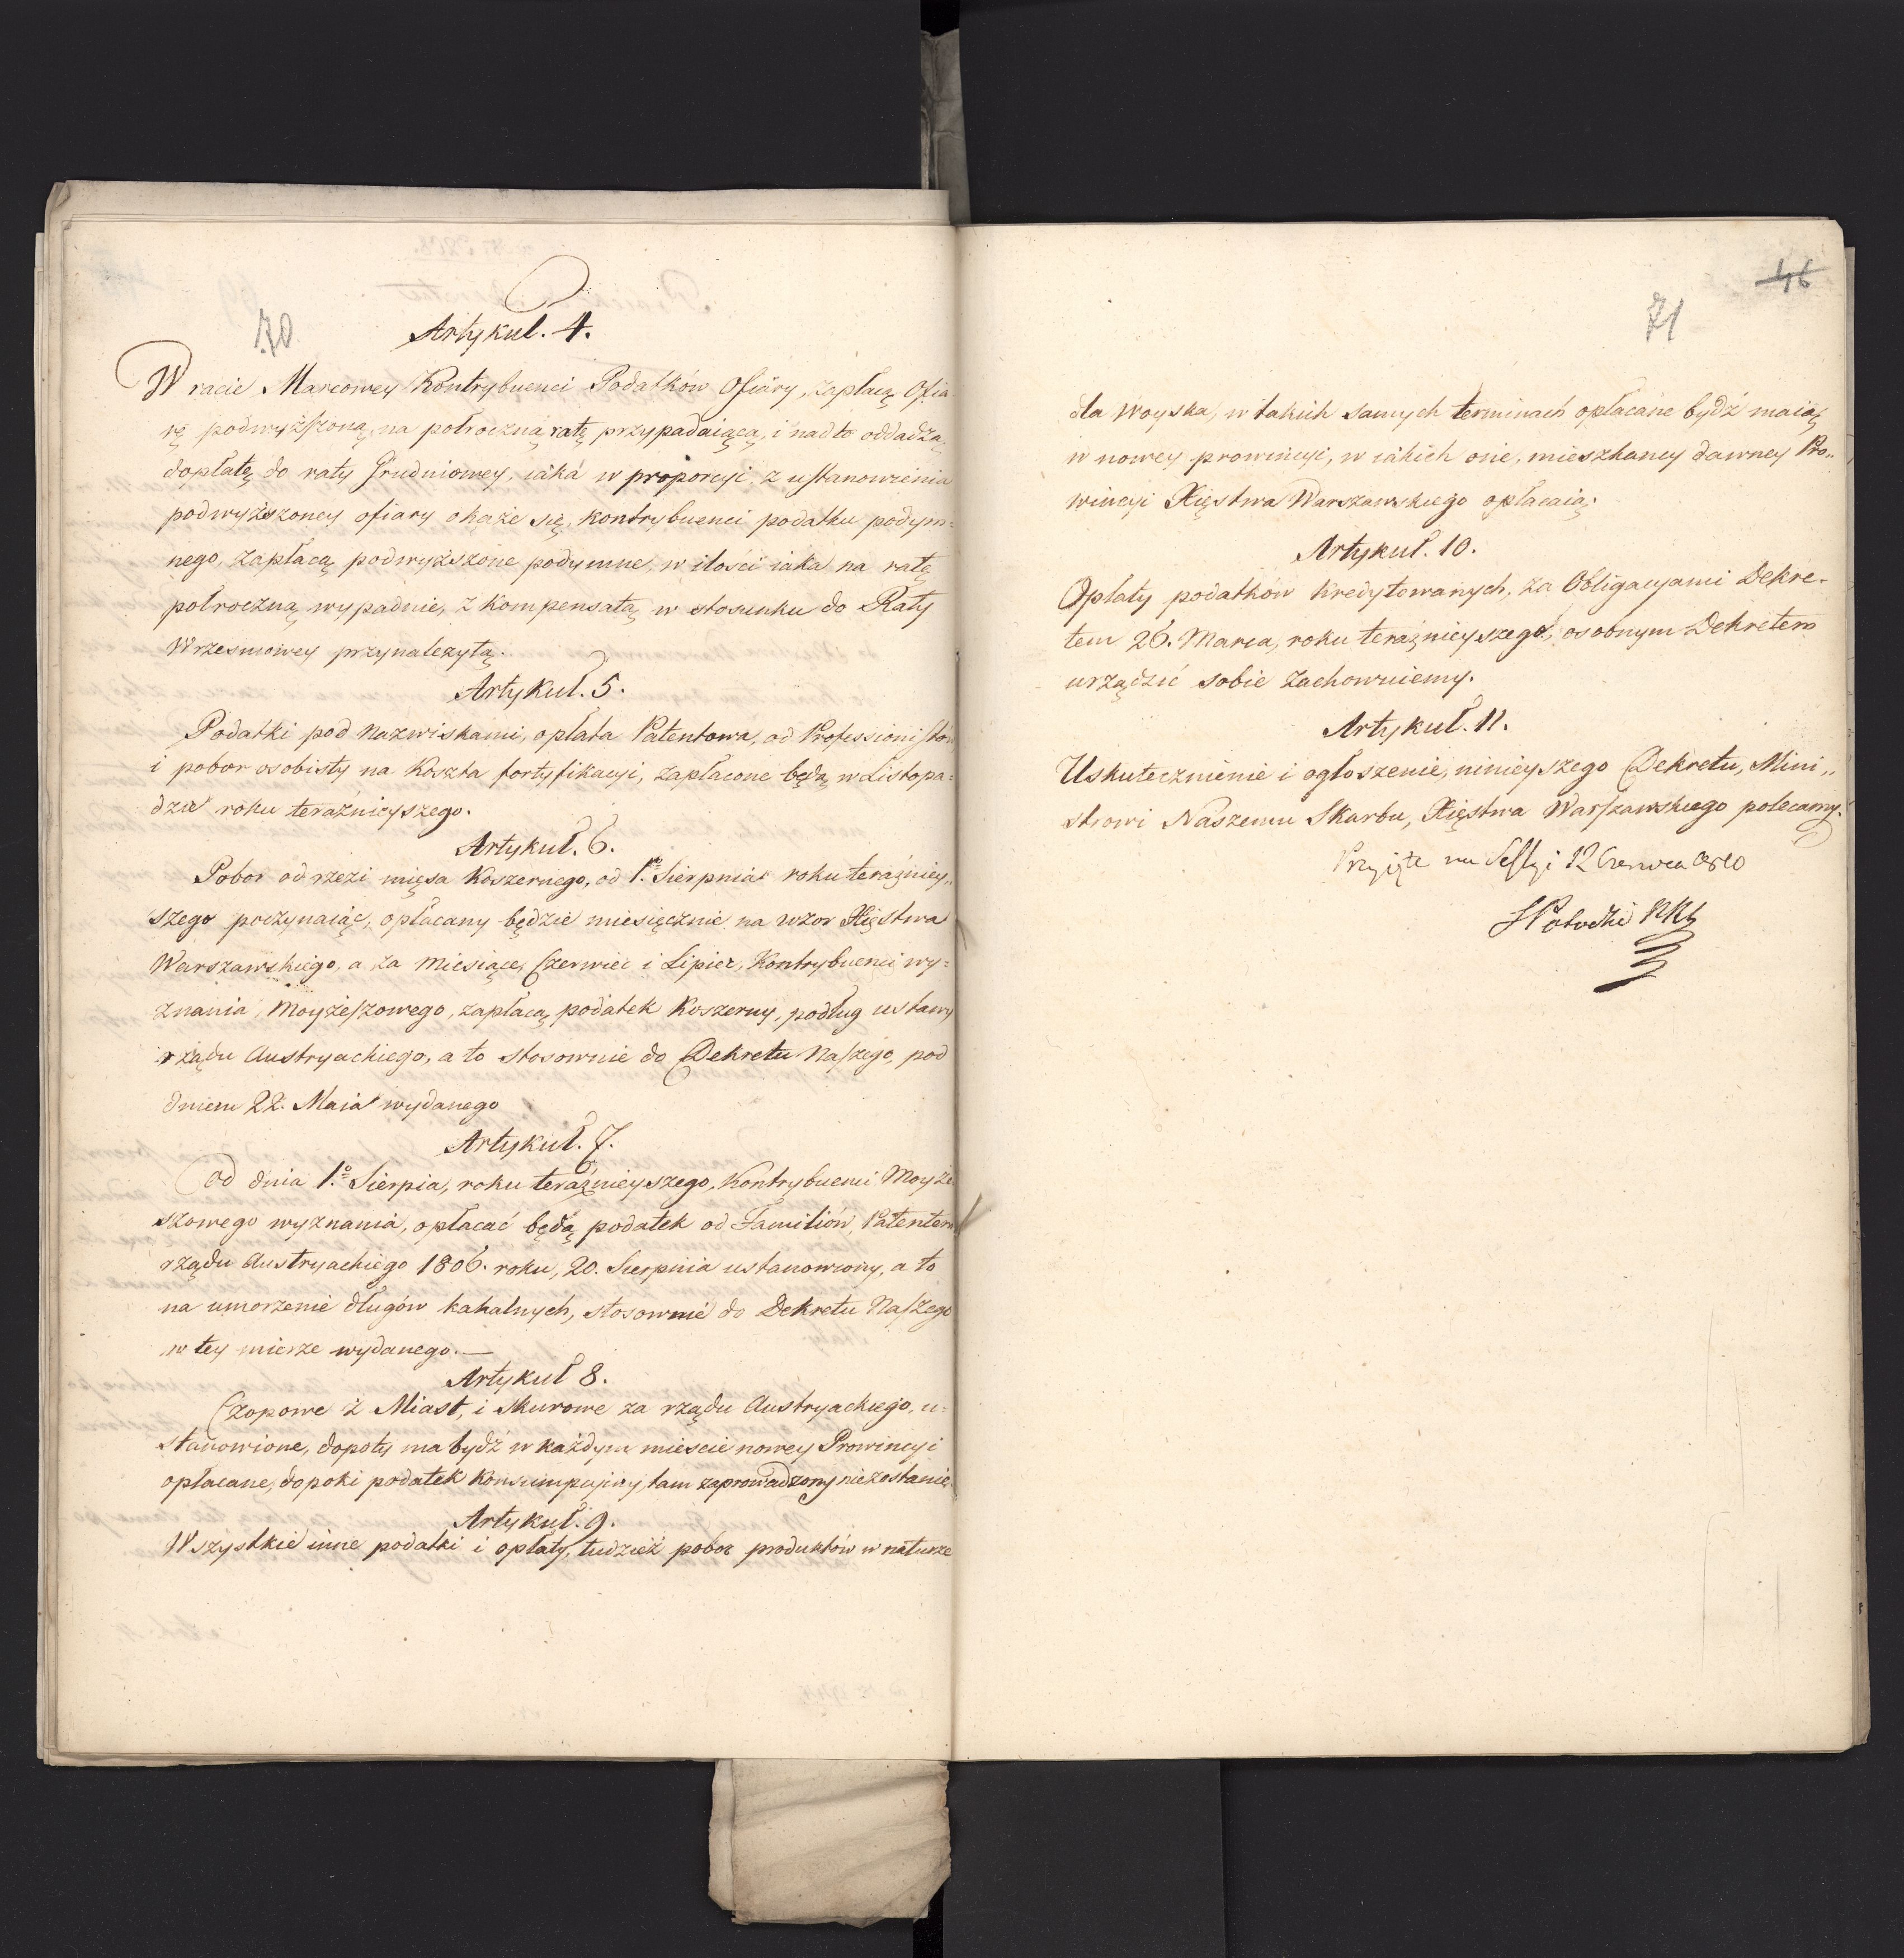 70
Artykuł. 4.
W racie Marcowey Kontrybuenci Podatków Ofiary, zapłacą Ofia
rę podwyższoną, na połroczną ratę przypadaiącą, i nadto oddadzą
dopłatę do raty Grudniowey, iaka w proporcyi z ustanowienia
podwyższoney ofiary okaże się, kontrybuenci podatku podym=
nego, zapłacą podwyższone podymne, w ilości iaka na ratę
połroczną wypadnie, z kompensatą w stosunku do Raty
Wrzesniowey przynależytą.
Artykuł. 5.
Podatki pod nazwiskami, opłata Patentowa, od Professionistów
i pobor osobisty na Koszta fortyfikacyi, zapłacone będą w Listopa=
dzie roku teraźnieyszego.
Artykuł. 6.
Pobor od rzezi mięsa Koszernego, od 1º Sierpnia roku teraźniey„
szego poczynaiąc, opłacany będzie miesięcznie na wzor Xięstwa
Warszawskiego, a za Miesiące, Czerwiec i Lipiec, Kontrybuenci wy=
znania Moyżeszowego, zapłacą podatek Koszerny, podług ustawy
rządu Austryackiego, a to stosownie do Dekretu Naszego, pod
dniem 22. Maia wydanego
Artykuł. 7.
Od dnia 1º Sierpia, roku teraźnieyszego, Kontrybuenci Moyże
szowego wyznania, opłacać będą podatek od Familiów, Patentem
rządu Austryackiego 1806. roku, 20. Sierpnia ustanowiony, a to
na umorzenie długów kahalnych, stosownie do Dekretu Naszego
w tey mierze wydanego.—
Artykuł 8.
Czopowe z Miast, i Skurowe za rządu Austryackiego, u=
stanowione, dopoty ma bydź w każdym miescie nowey Prowincyi
opłacane, dopoki podatek Konsumpcyiny, tam zaprowadzony niezostanie.
Artykuł. 9.
Wszystkie inne podatki i opłaty, tudzież pobor produktów w naturze
46
71
dla Woyska, w takich samych terminach opłacane bydź maią
w nowey prowincyi, w iakich one, mieszkancy dawney Pro„
wincyi Xięstwa Warszawskiego opłacaią.
Artykuł. 10.
Opłaty podatków Kredytowanych, za Obligacyami Dekre-
tem 26. Marca, roku teraźnieyszego, osobnym Dekretem
urządzić sobie zachowuiemy.
Artykuł. 11.
Uskutecznienie i ogłoszenie, ninieyszego Dekretu, Mini„
strowi Naszemu Skarbu, Xięstwa Warszawskiego polecamy.
Przyięte na Sessyi 12 Czerwca 1810